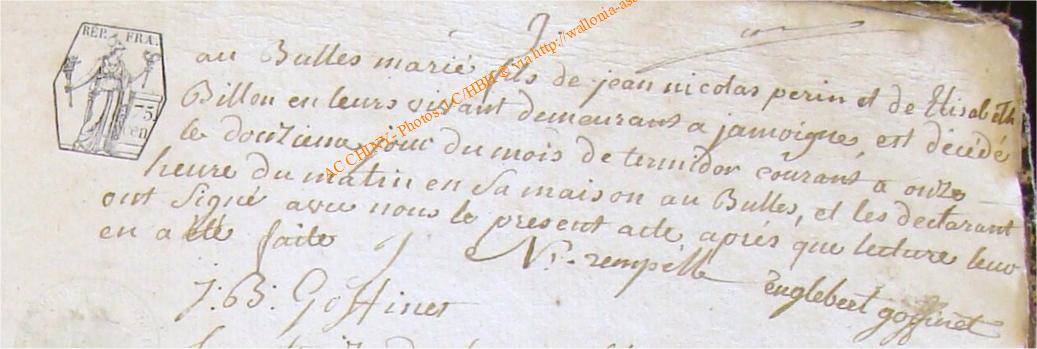 RÉP. FRA.
75
cen
au Bulles marié, fils de jean nicolas perin et de Elisabeth
Billon en leurs vivant demeurant a jamoigne, est décédé
le douzieme jour du mois de termidor courant a onze
heure du matin en Sa maison au Bulles, et les declarant
ont Signé avec nous le present acte, aprés que lecture leur
en a été faite
N. rempelle
englebert goffinet
J: B: Goffinet
AC CHINY - Photos AC/HBH © via http://wallonia-as